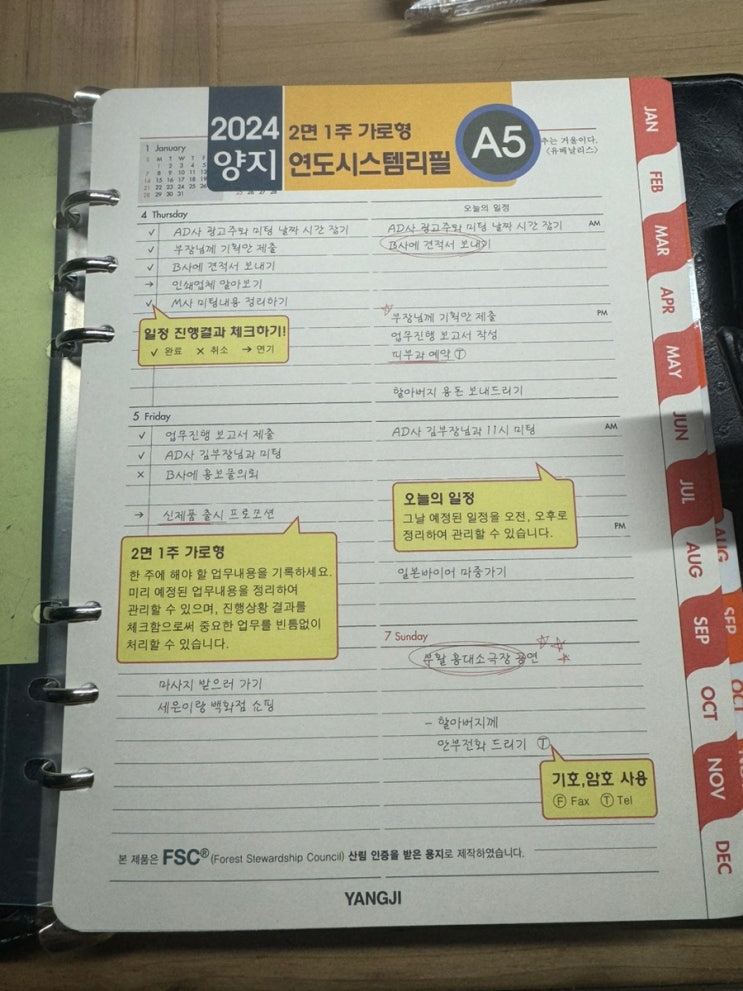 2024
양지
2면 1주 가로형
연도시스템리필
A5
추는 거울이다.
〈유베날리스〉
1 January
S M T W T F
1 2 3 4 5
7 8 9 10 11 12
14 15 16 17 18 19
21 22 23 24 25 26
28 29 30 31
25 26 27 28
4 Thursday
✓ AD사 광고주와 미팅 날짜 시간 잡기
✓ 부장님께 기획안 제출
✓ B사에 견적서 보내기
→ 인쇄업체 알아보기
✓ M사 미팅내용 정리하기
일정 진행결과 체크하기!
✓ 완료 × 취소 → 연기
오늘의 일정
AD사 광고주와 미팅 날짜 시간 잡기 AM
B사에 견적서 보내기
부장님께 기획안 제출 PM
업무진행 보고서 작성
피부과 예약 Ⓣ
할아버지 용돈 보내드리기
5 Friday
✓ 업무진행 보고서 제출
✓ AD사 김부장님과 미팅
× B사에 홍보물의뢰
→ 신제품 출시 프로모션
AD사 김부장님과 11시 미팅 AM
오늘의 일정
그날 예정된 일정을 오전, 오후로
정리하여 관리할 수 있습니다.
PM
일본바이어 마중가기
2면 1주 가로형
한 주에 해야 할 업무내용을 기록하세요.
미리 예정된 업무내용을 정리하여
관리할 수 있으며, 진행상황 결과를
체크함으로써 중요한 업무를 빈틈없이
처리할 수 있습니다.
마사지 받으러 가기
세은이랑 백화점 쇼핑
7 Sunday
부활 홍대소극장 공연
– 할아버지께
안부전화 드리기 Ⓣ
기호,암호 사용
Ⓕ Fax Ⓣ Tel
본 제품은 FSC® (Forest Stewardship Council) 산림 인증을 받은 용지로 제작하였습니다.
YANGJI
JAN
FEB
MAR
APR
MAY
JUN
JUL
AUG
SEP
OCT
NOV
DEC
AUG
SEP
OCT